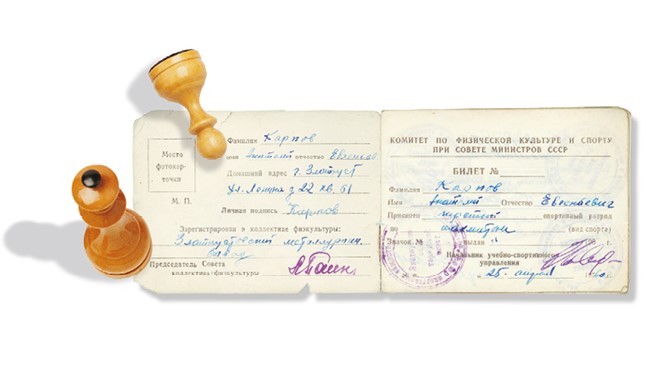 Место
фотокар-
точки
М. П.
Фамилия Карпов
имя Анатолий отчество Евгеньев
Домашний адрес г. Златоуст
ул. Ленина д 22 кв. 61
Личная подпись Карпов
Зарегистрирован в коллективе физкультуры:
Златоустовский металлургич.
завод
Председатель Совета
коллектива физкультуры
КОМИТЕТ ПО ФИЗИЧЕСКОЙ КУЛЬТУРЕ И СПОРТУ
ПРИ СОВЕТЕ МИНИСТРОВ СССР
БИЛЕТ №
Фамилия Карпов
Имя Анатолий Отчество Евгеньевич
Присвоен третий спортивный разряд
по шахматам (вид спорта)
Значок № выдан „ г.
Начальник учебно-спортивного
управления
„25" апреля 196 г.